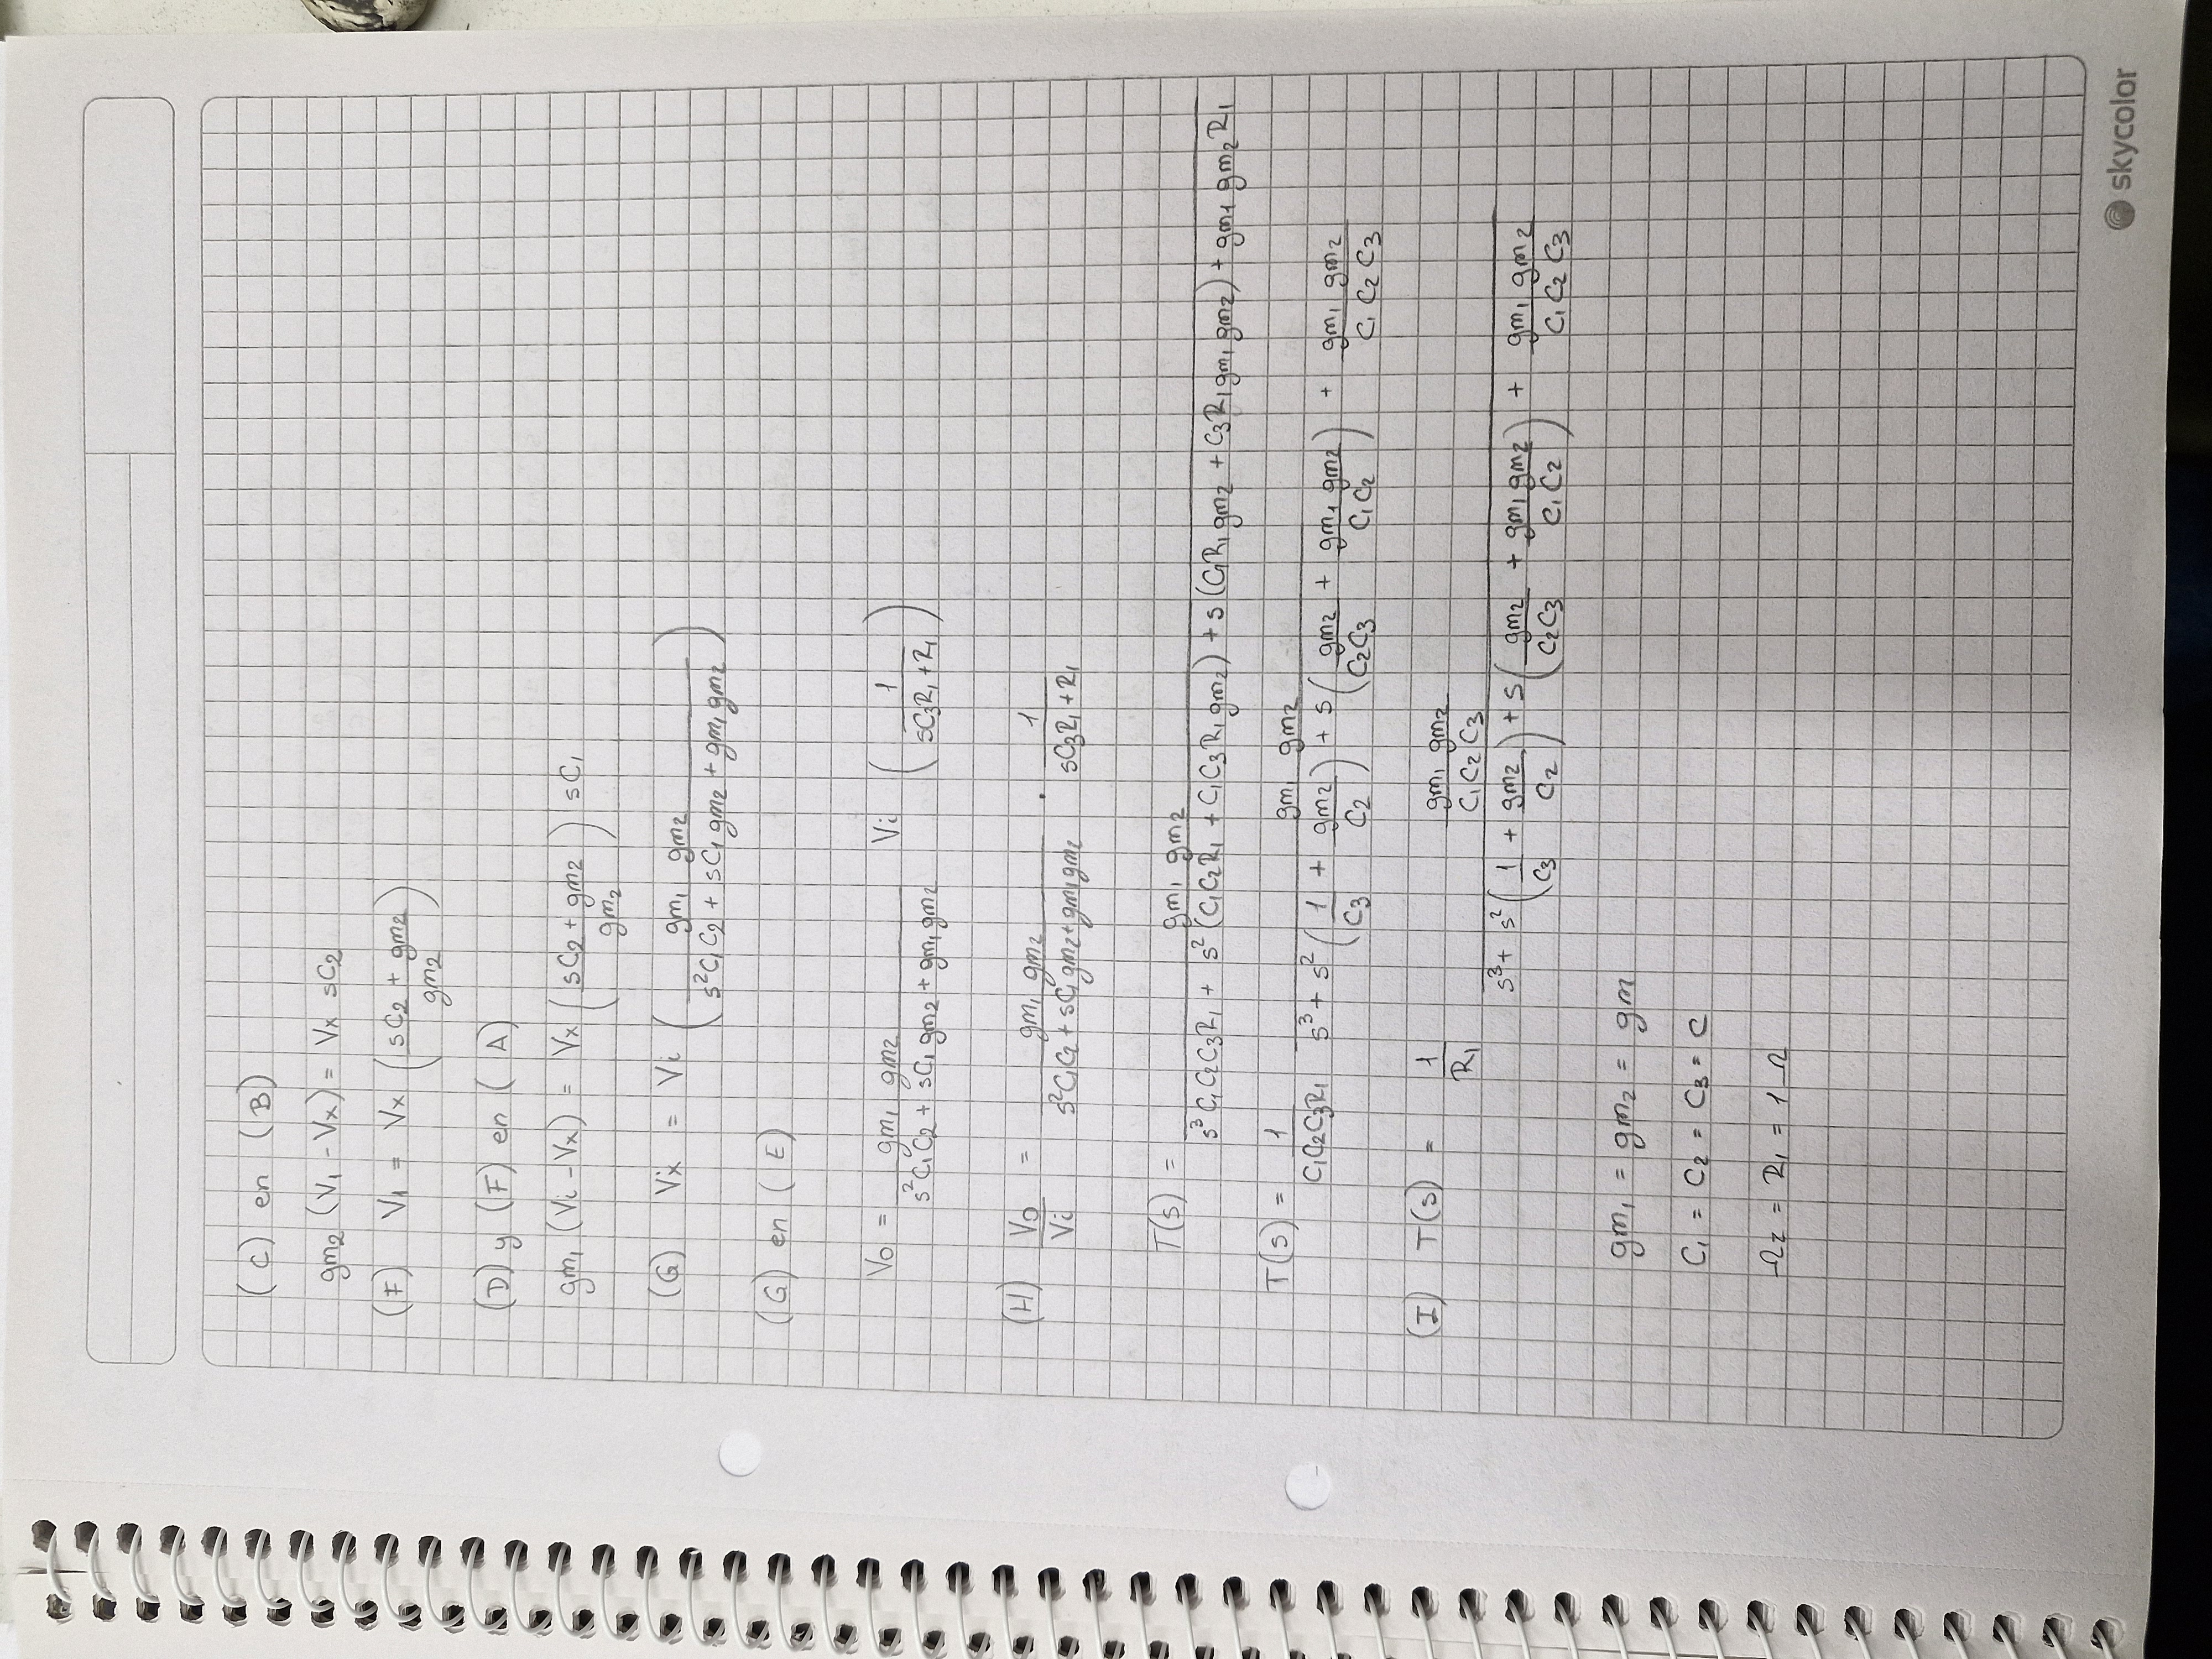 (C) en (B)
gm₂ (V₁ - Vx) = Vx sC₂
(F) V₁ = Vx ((sC₂ + gm₂) / gm₂)
(D) y (F) en (A)
gm₁ (Vi - Vx) = Vx ((sC₂ + gm₂) / gm₂) sC₁
(G) Vx = Vi (gm₁ gm₂ / (s²C₁C₂ + sC₁ gm₂ + gm₁ gm₂))
(G) en (E)
Vo = gm₁ gm₂ / (s²C₁C₂ + sC₁ gm₂ + gm₁ gm₂) Vi (1 / (sC₃R₁ + R₁))
(H) Vo / Vi = gm₁ gm₂ / (s²C₁C₂ + sC₁ gm₂ + gm₁ gm₂) · 1 / (sC₃R₁ + R₁)
T(s) = gm₁ gm₂ / (s³ C₁C₂C₃R₁ + s² (C₁C₂R₁ + C₁C₃R₁ gm₂) + s (C₁R₁ gm₂ + C₃R₁ gm₁ gm₂) + gm₁ gm₂ R₁)
T(s) = 1 / (C₁C₂C₃R₁) gm₁ gm₂ / (s³ + s² (1 / C₃ + gm₂ / C₂) + s (gm₂ / (C₂C₃) + gm₁ gm₂ / (C₁C₂)) + gm₁ gm₂ / (C₁C₂C₃))
(I) T(s) = 1 / R₁ (gm₁ gm₂ / (C₁C₂C₃)) / (s³ + s² (1 / C₃ + gm₂ / C₂) + s (gm₂ / (C₂C₃) + gm₁ gm₂ / (C₁C₂)) + gm₁ gm₂ / (C₁C₂C₃))
gm₁ = gm₂ = gm
C₁ = C₂ = C₃ = C
Ωz = R₁ = 1 Ω
skycolor